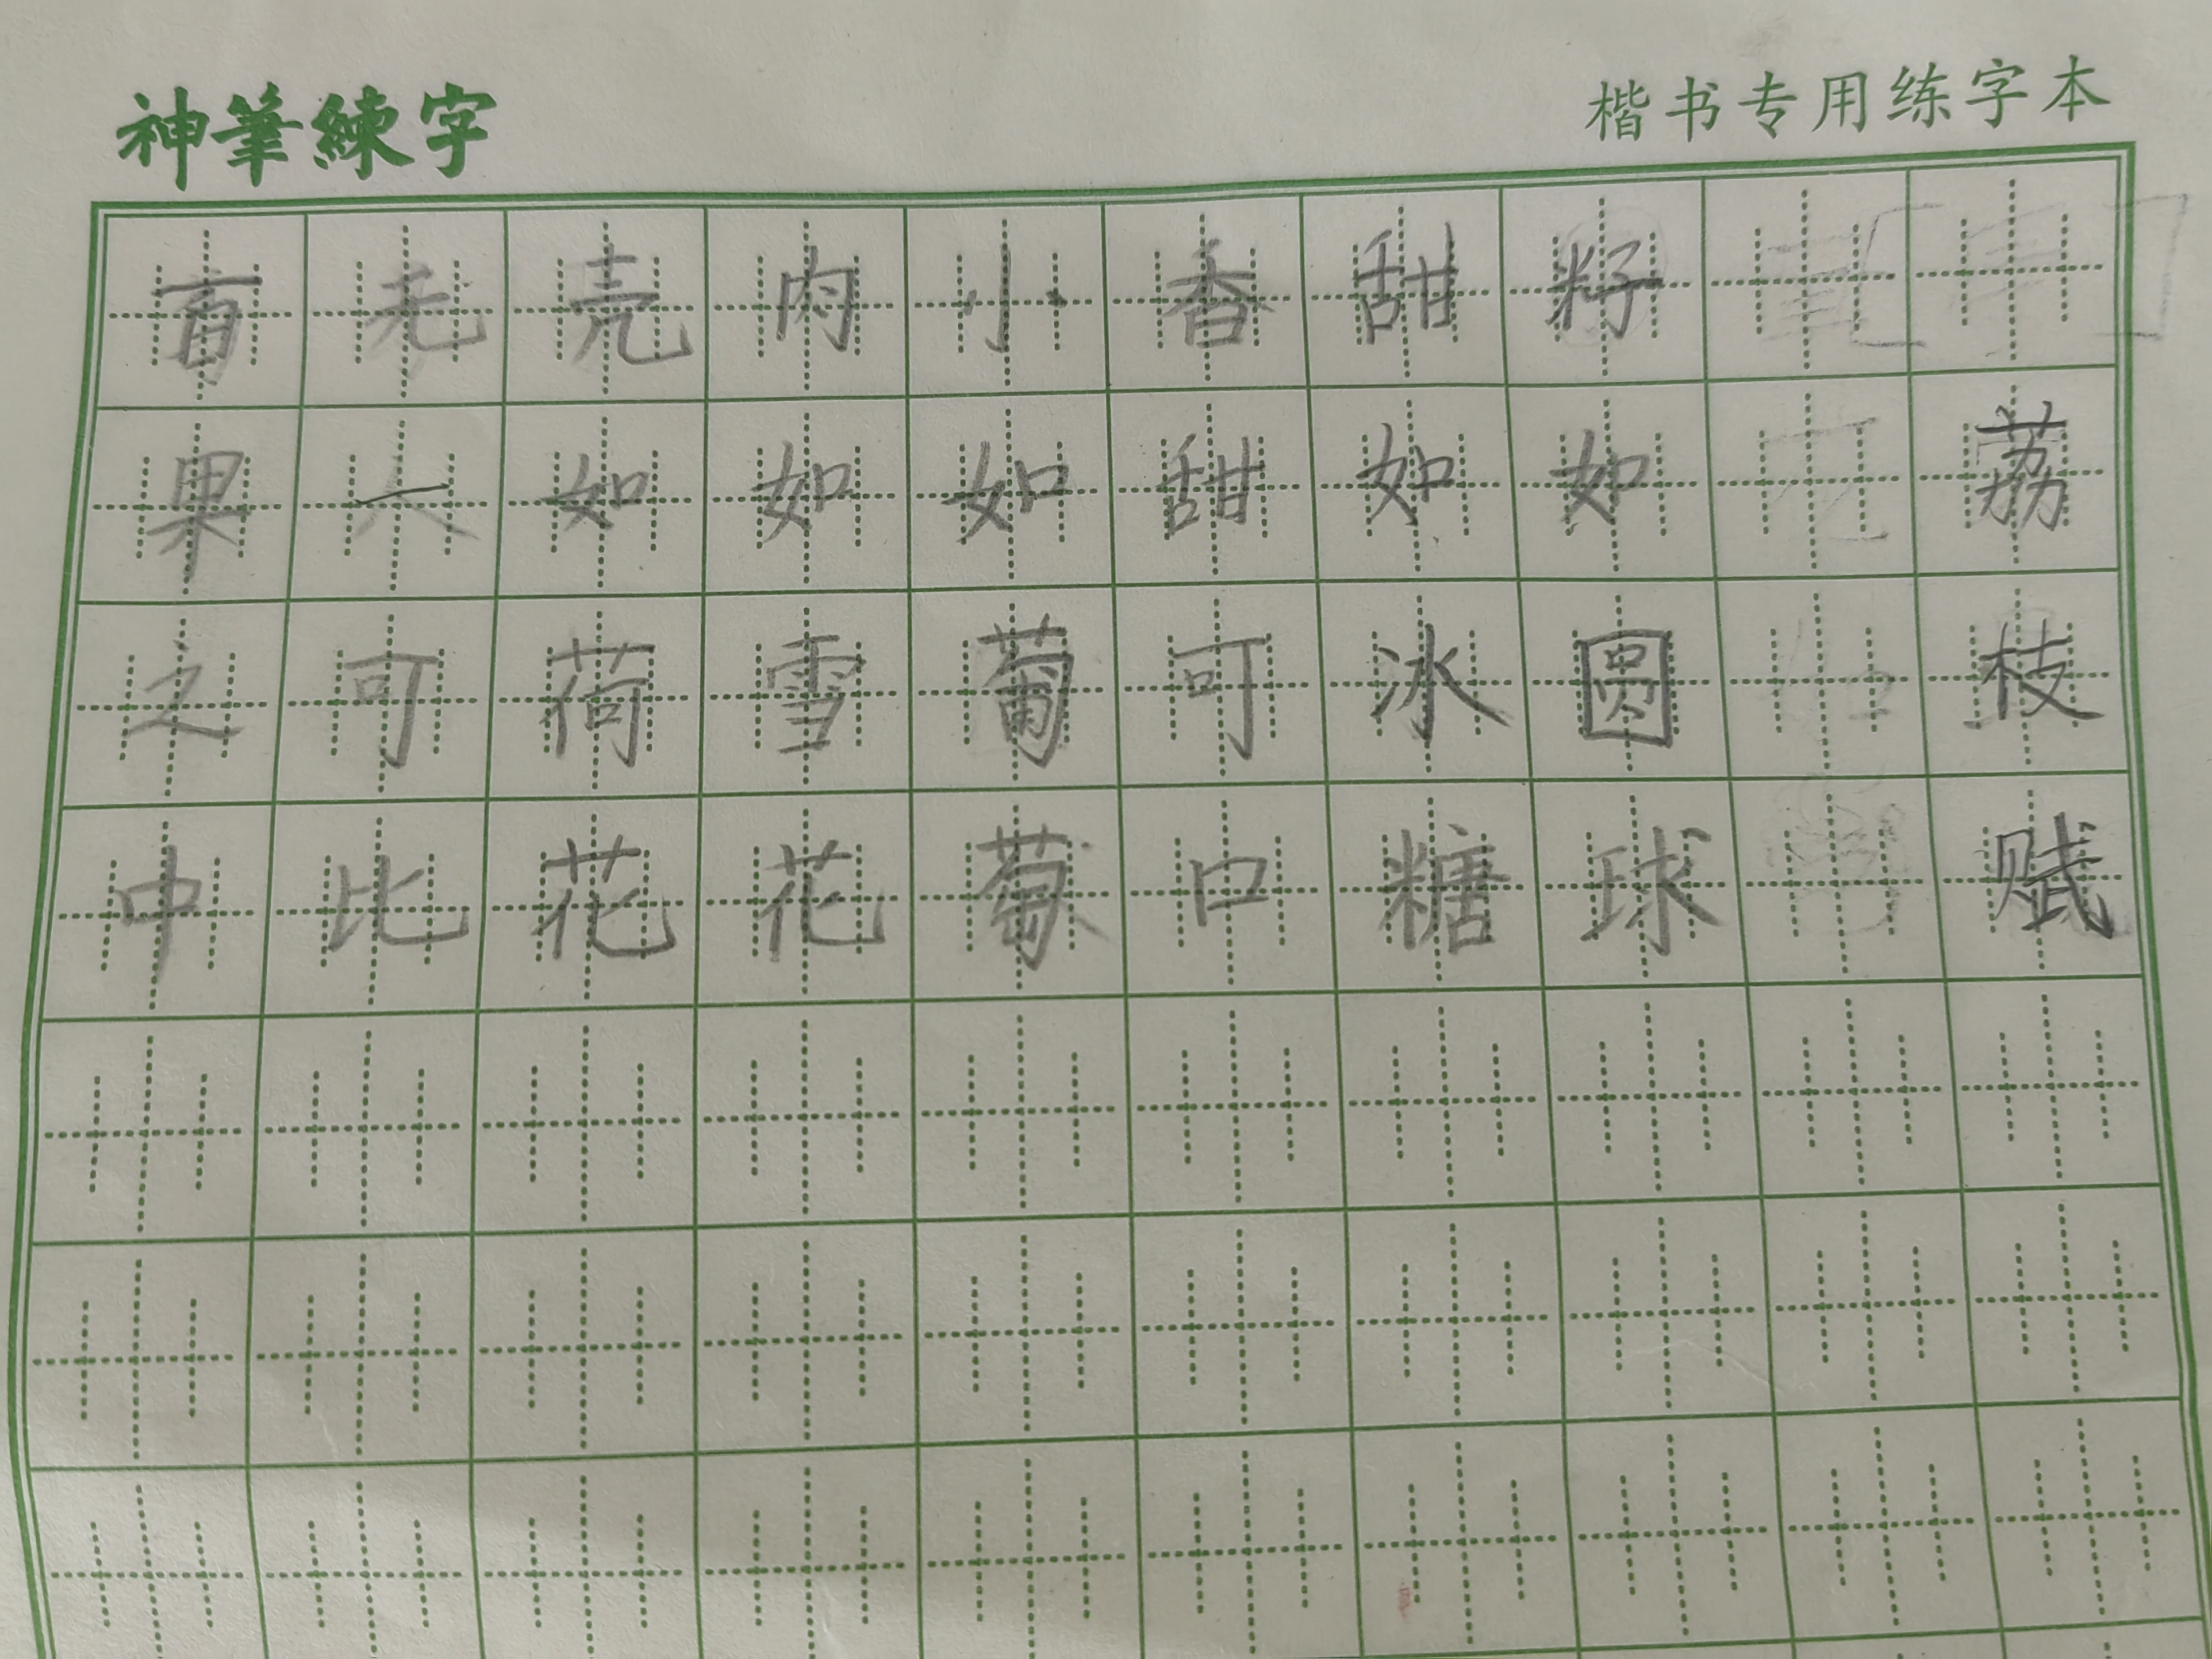 神筆練字
楷书专用练字本
荔枝赋
籽如圆球
甜如冰糖
香甜可口
小如葡萄
肉如雪花
壳如荷花
无人可比
百果之中